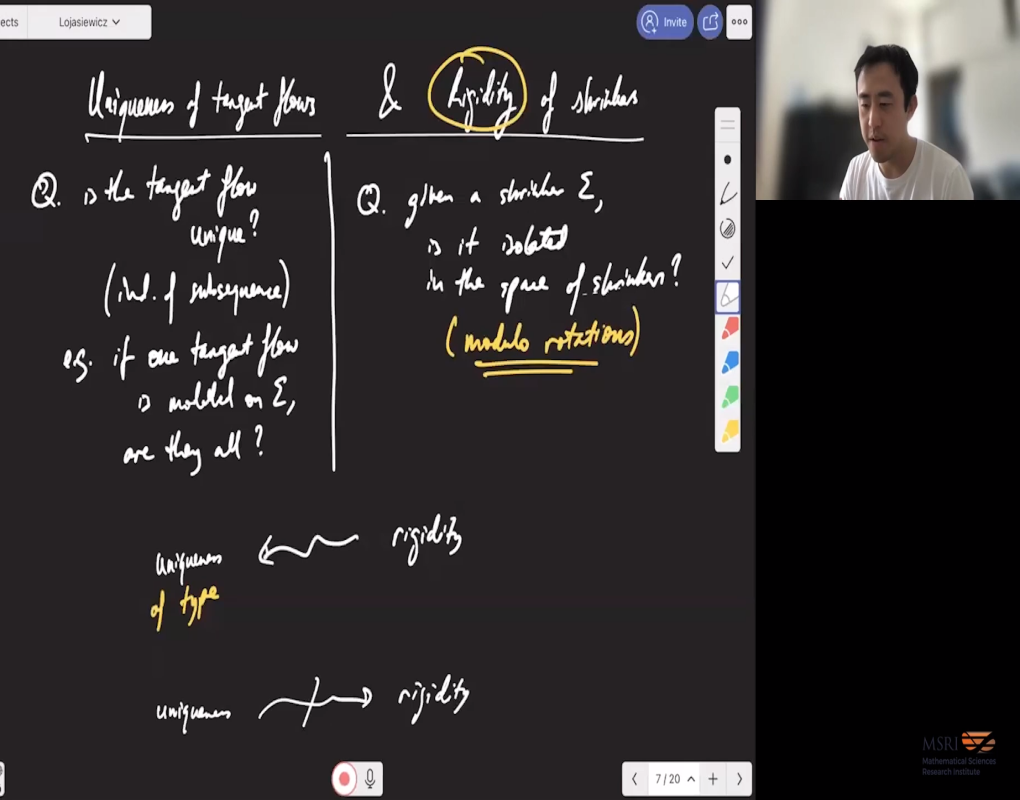 ects
Lojasiewicz
Invite
Uniqueness of tangent flows & Rigidity of shrinkers
Q. is the tangent flow
unique?
(ind. of subsequence)
e.g. if one tangent flow
is modelled on Σ,
are they all?
Q. given a shrinker Σ,
is it isolated
in the space of shrinkers?
(modulo rotations)
uniqueness rigidity
of type
uniqueness rigidity
7/20
MSRI
Mathematical Sciences
Research Institute